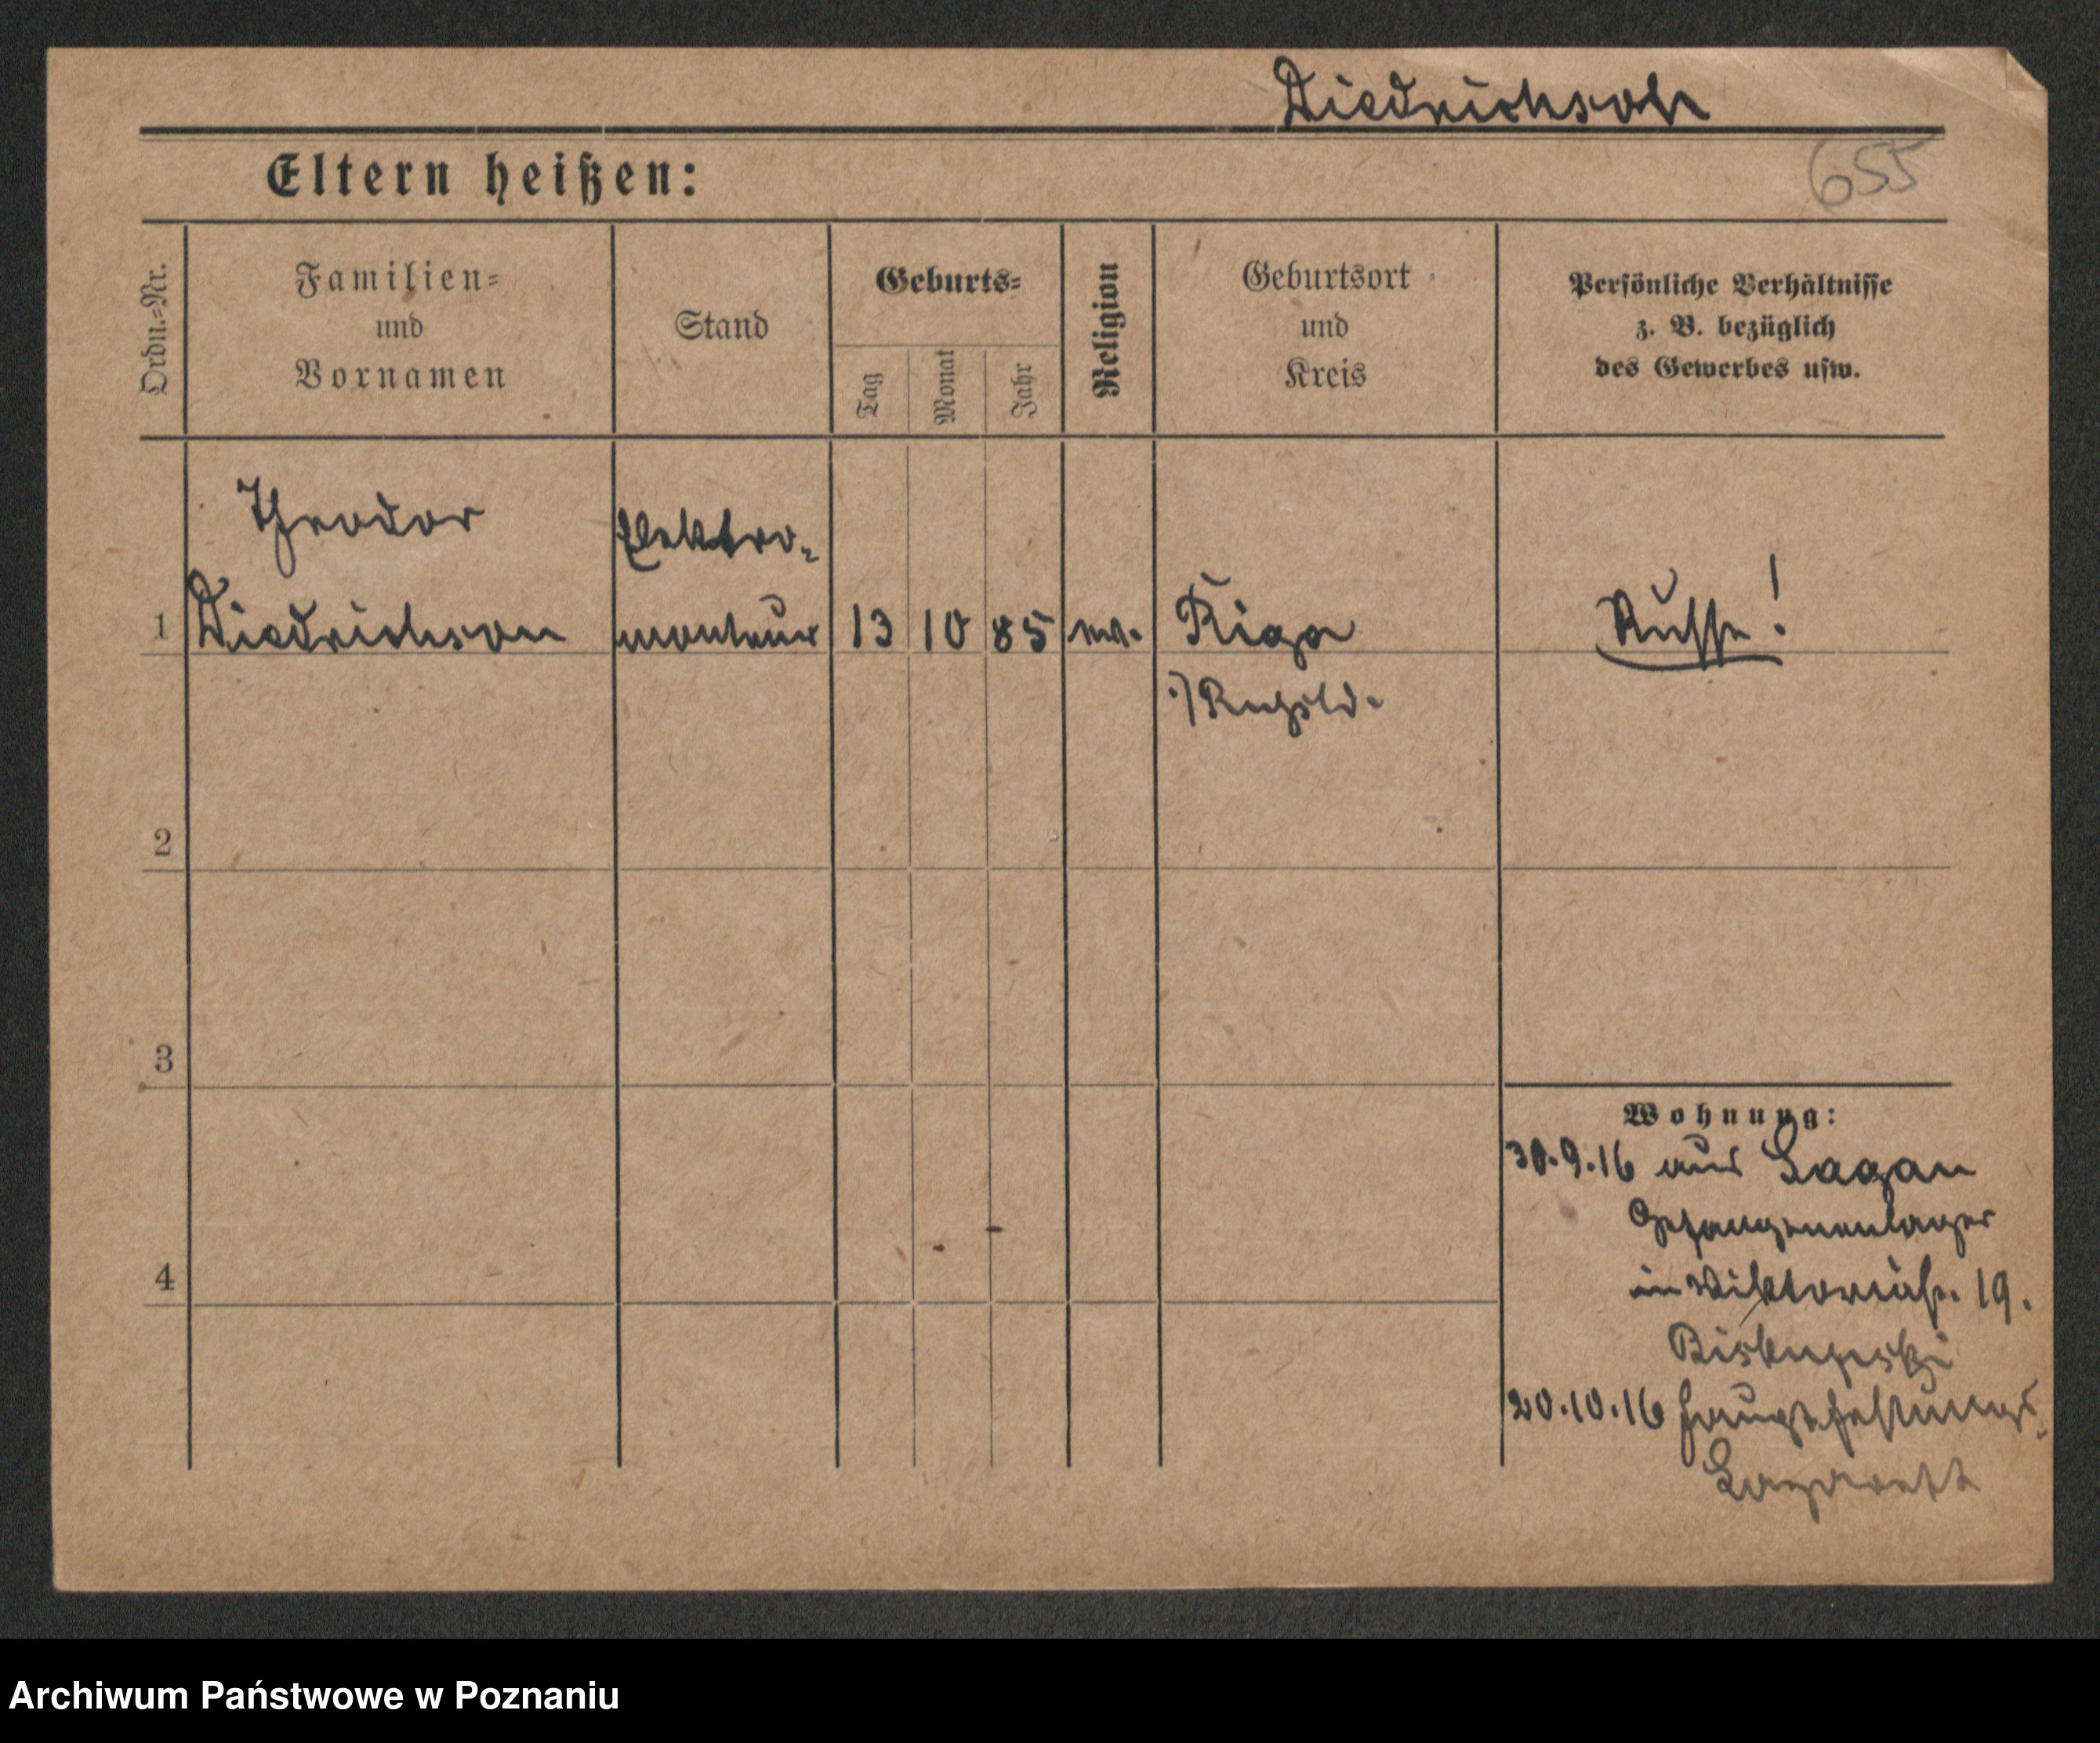 Diedrichson
Eltern heißen:
655
Ordn.=Nr.
Familien=
und
Vornamen
Stand
Geburts=
Tag
Monat
Jahr
Religion
Geburtsort
und
Kreis
Persönliche Verhältnisse
z. B. bezüglich
des Gewerbes usw.
Theodor
Elektro-
1 Diedrichson monteur 13 10 85 ev. Riga Russe!
Rußld.
2
3
4
Wohnung:
30.9.16 aus Sagan
Gefangenenlager
in Viktoriastr. 19.
20.10.16 Hauptfestungs-
Lazarett
Archiwum Państwowe w Poznaniu